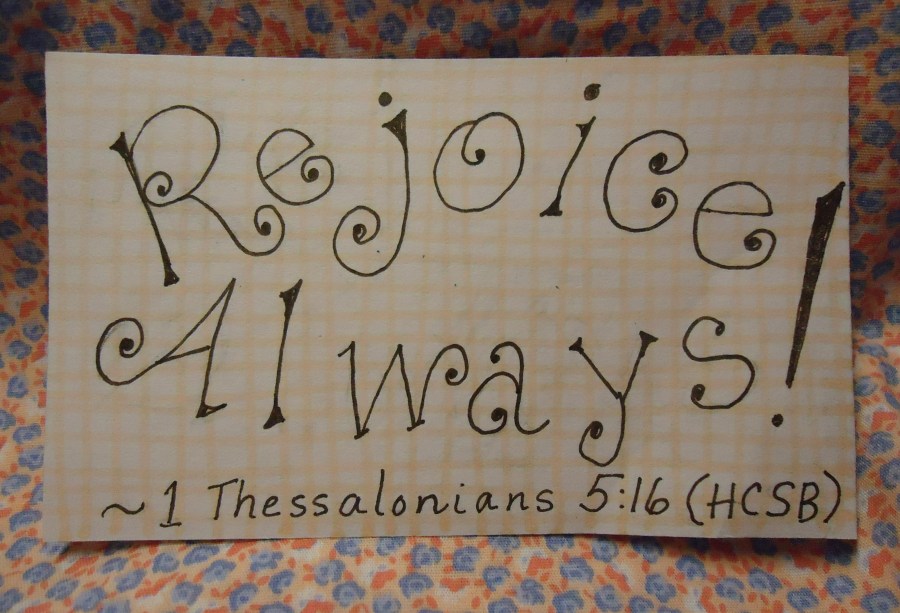 Rejoice
Always!
~1 Thessalonians 5:16 (HCSB)